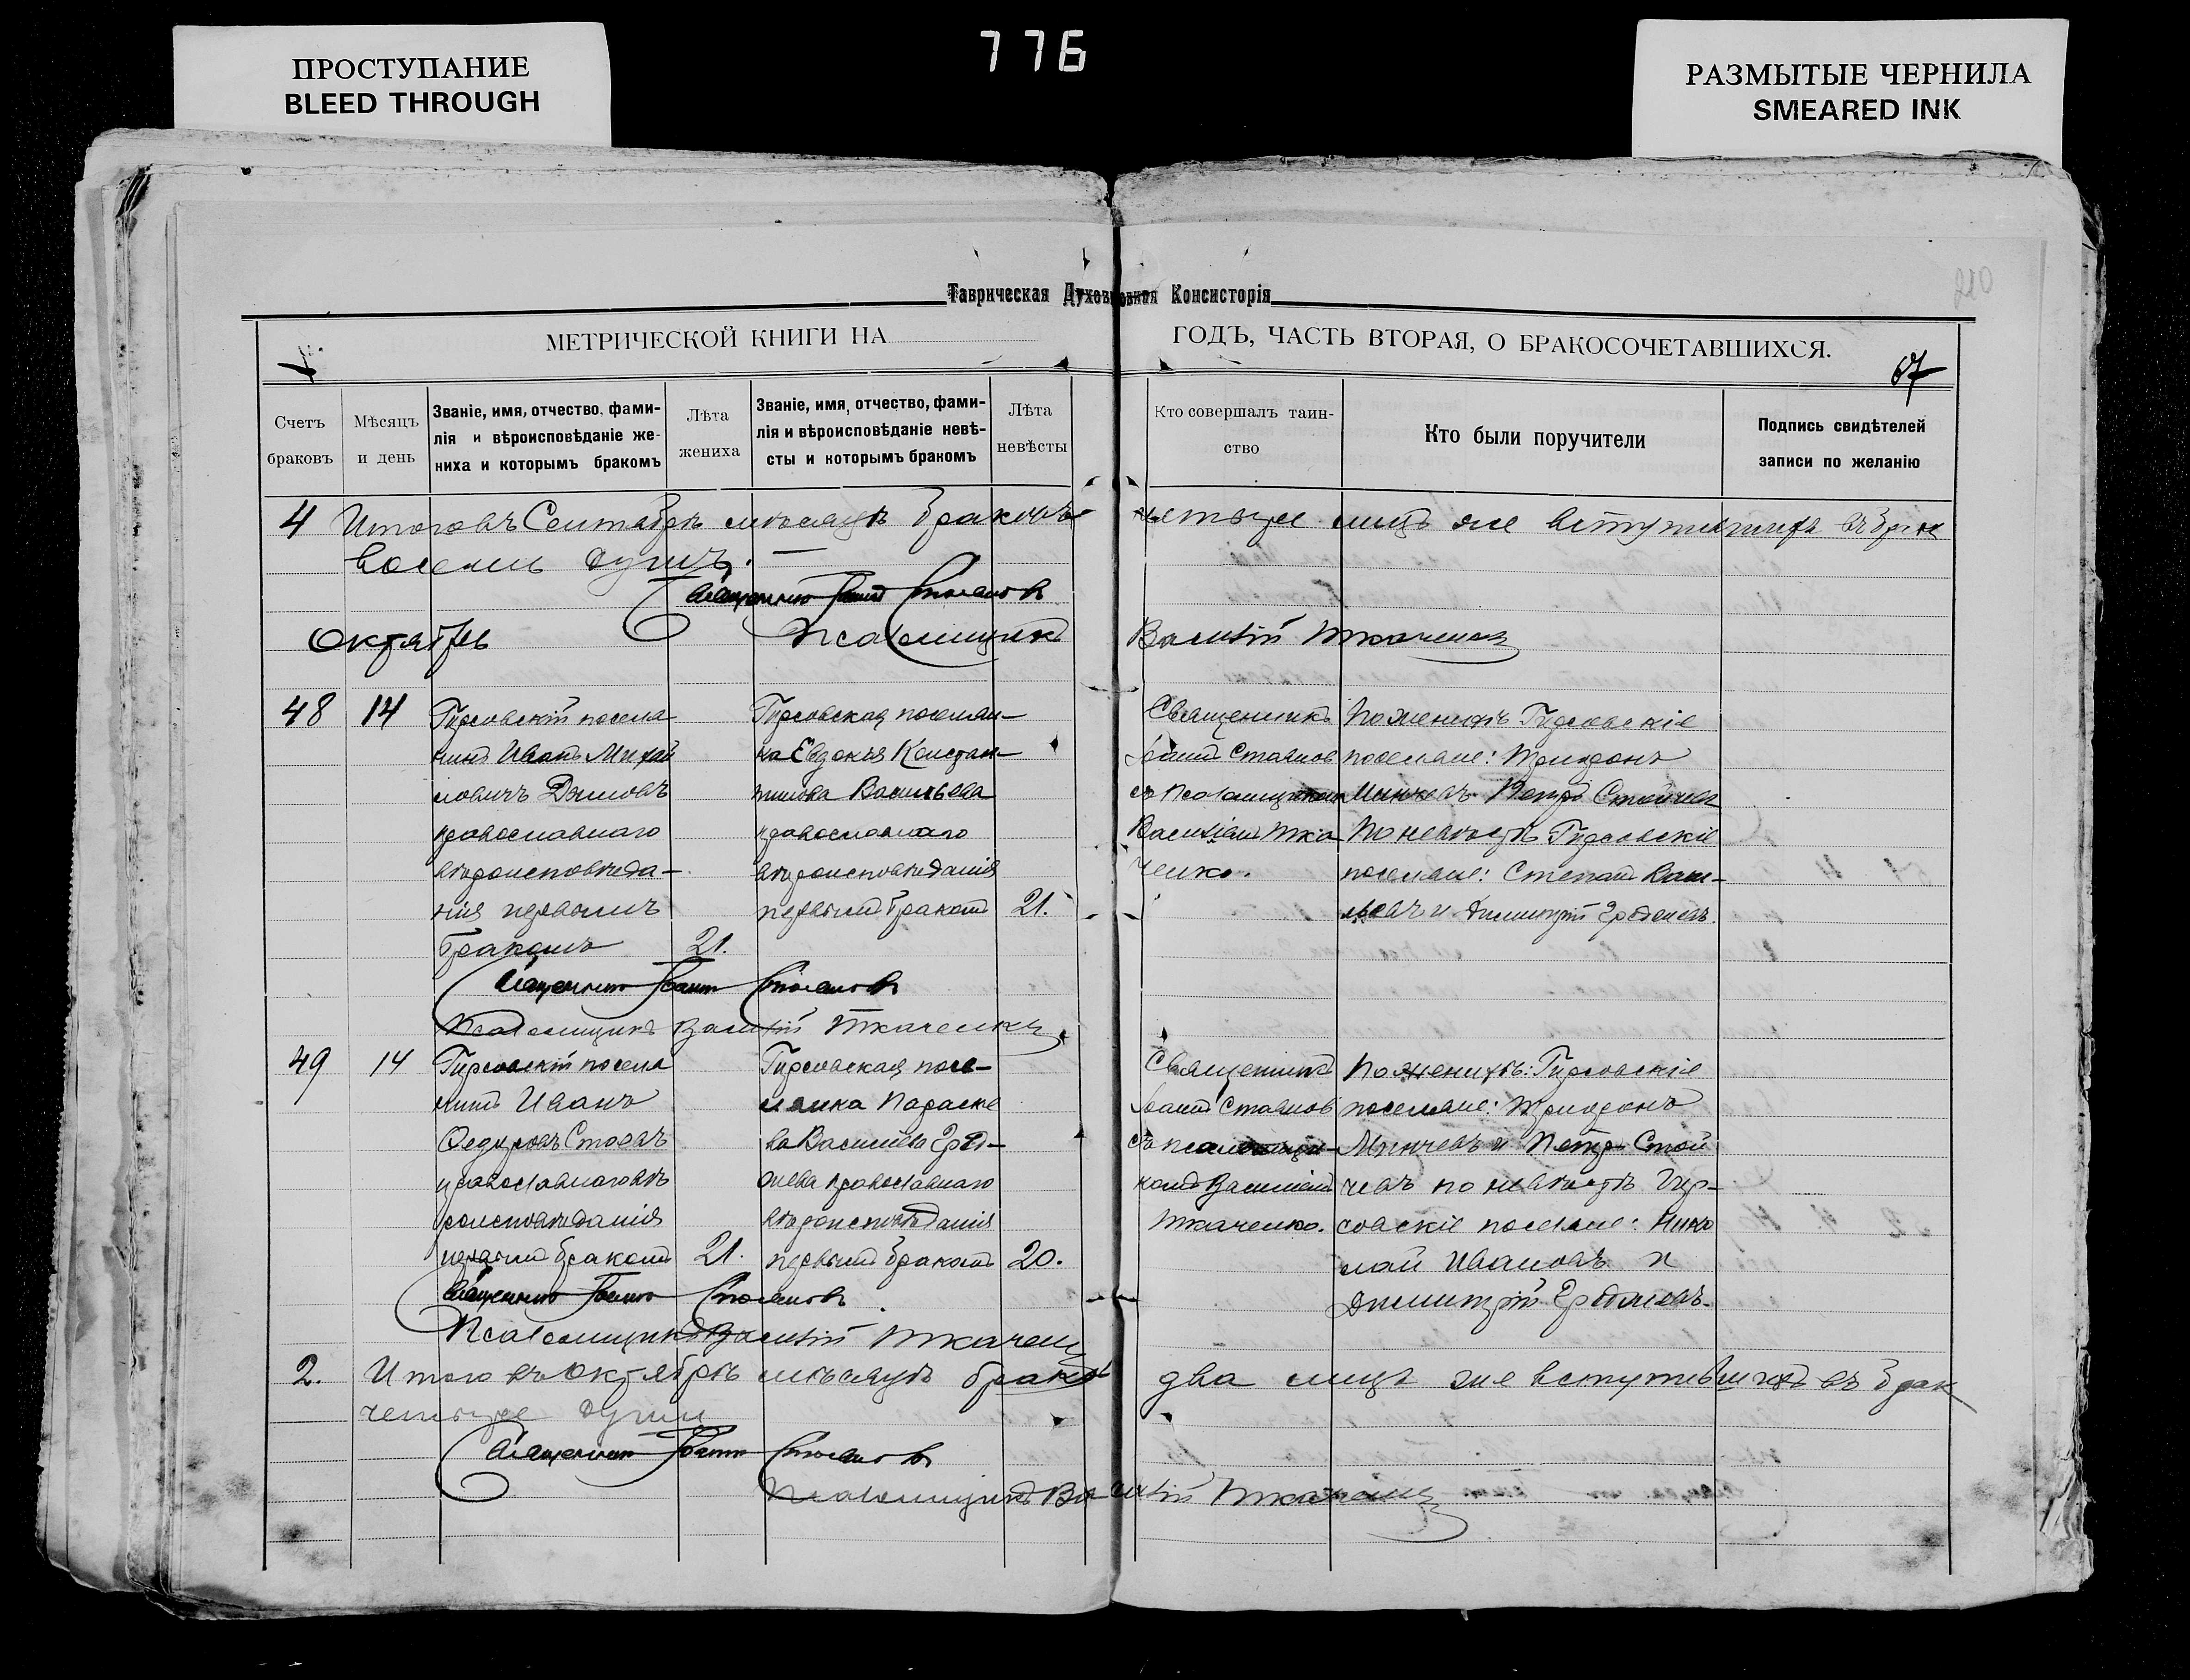 776
ПРОСТУПАНИЕ
BLEED THROUGH
РАЗМЫТЫЕ ЧЕРНИЛА
SMEARED INK
Таврическая Духовная Консисторія
МЕТРИЧЕСКОЙ КНИГИ НА ГОДЪ, ЧАСТЬ ВТОРАЯ, О БРАКОСОЧЕТАВШИХСЯ.
67
Счетъ
браковъ
Мѣсяцъ
и день
Званіе, имя, отчество, фами-
лія и вѣроисповѣданіе же-
ниха и которымъ бракомъ
Лѣта
жениха
Званіе, имя, отчество, фами-
лія и вѣроисповѣданіе невѣ-
сты и которымъ бракомъ
Лѣта
невѣсты
Кто совершалъ таин-
ство
Кто были поручители
Подпись свидѣтелей
записи по желанію
4 Итого въ Сентябрѣ мѣсяцѣ браковъ четыре лицъ же вступившихъ въ бракъ
восемь душъ. —
Священникъ Іоаннъ Стоянов
Октябрь
Псаломщикъ Василій Ткаченко
48
14
Гирсовскій посела
нинъ Иванъ Михай
ловичъ Димовъ
православнаго
вѣроисповѣда-
нія первымъ
бракомъ
21.
Гирсовская поселян-
ка Евдокія Констан-
тинова Васильева
православнаго
вѣроисповѣданія
первымъ бракомъ
21.
Священникъ
Іоаннъ Стоянов
съ Псаломщикомъ
Василіемъ Тка
ченко.
По женихѣ Гирсовскіе
поселяне: Трифонъ
Минчевъ Петръ Стойчев
По невѣстѣ Гирсовскіе
поселяне: Степанъ Васи-
льевъ и Димитрій
Священникъ Іоаннъ Стоянов
Псаломщикъ Василій Ткаченко
49
14
Гирсовскій посела
нинъ Иванъ
Ѳедоровъ Стоевъ
православнаго вѣ
роисповѣданія
первымъ бракомъ
21.
Гирсовская посе-
лянка Параске
ва Василева
православнаго
вѣроисповѣданія
первымъ бракомъ
20.
Священникъ
Іоаннъ Стоянов
съ псаломщи-
комъ Василіемъ
Ткаченко.
По женихѣ: Гирсовскіе
поселяне: Трифонъ
Минчевъ и Петръ Стой
чевъ по невѣстѣ Гир-
совскіе поселяне: Нико
лай Ивановъ и
Димитрій
Священникъ Іоаннъ Стоянов
Псаломщикъ Василій Ткаченко
2. Итого въ Октябрѣ мѣсяцѣ браковъ два лицъ же вступившихъ въ брак
четыре души
Священникъ Іоаннъ Стоянов
Псаломщикъ Василій Ткаченко